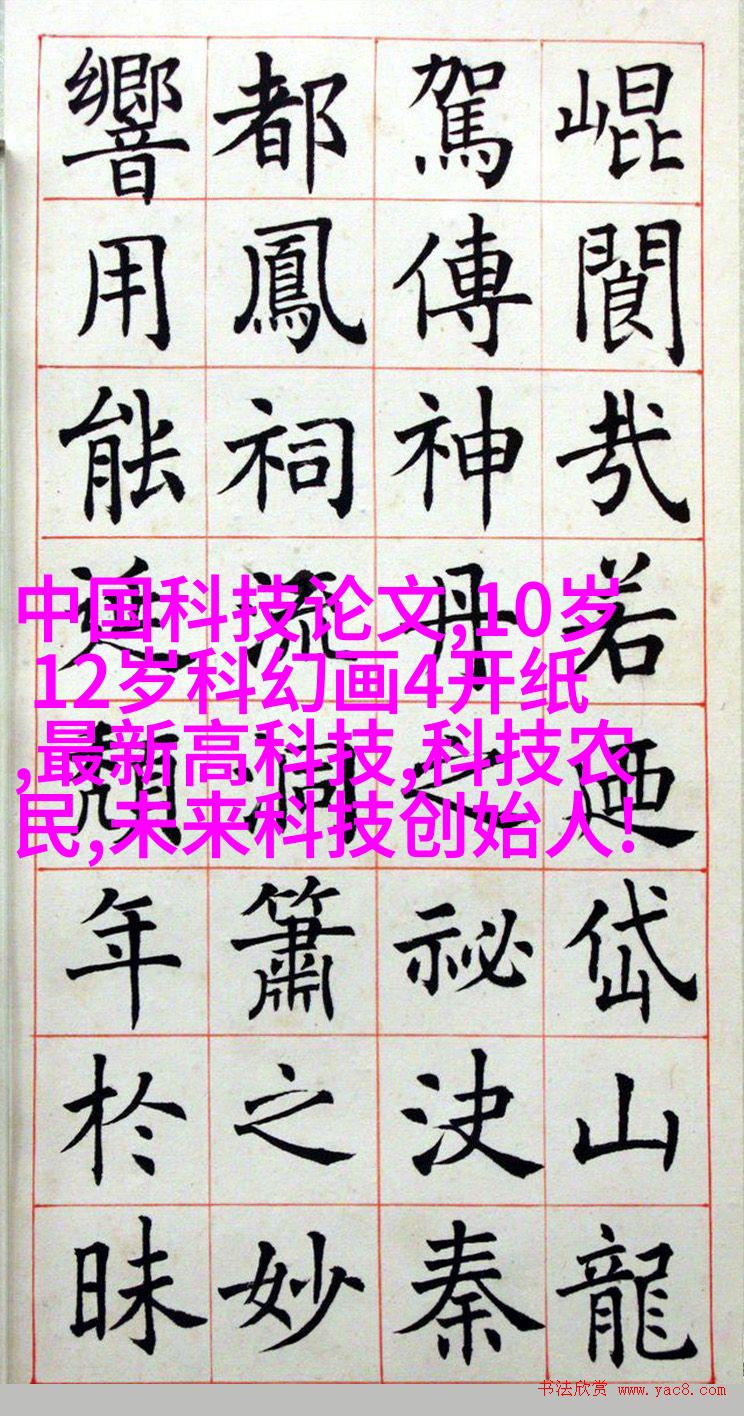 崐閬哉若迺岱山龍
駕傳神丹之祕決秦
都鳳祠流洞簫之妙
響用能頹年於昧
中国科技论文,10岁
12岁科幻画4开纸
,最新高科技,科技农
民,未来科技创始人!
书法欣赏 www.yac8.com